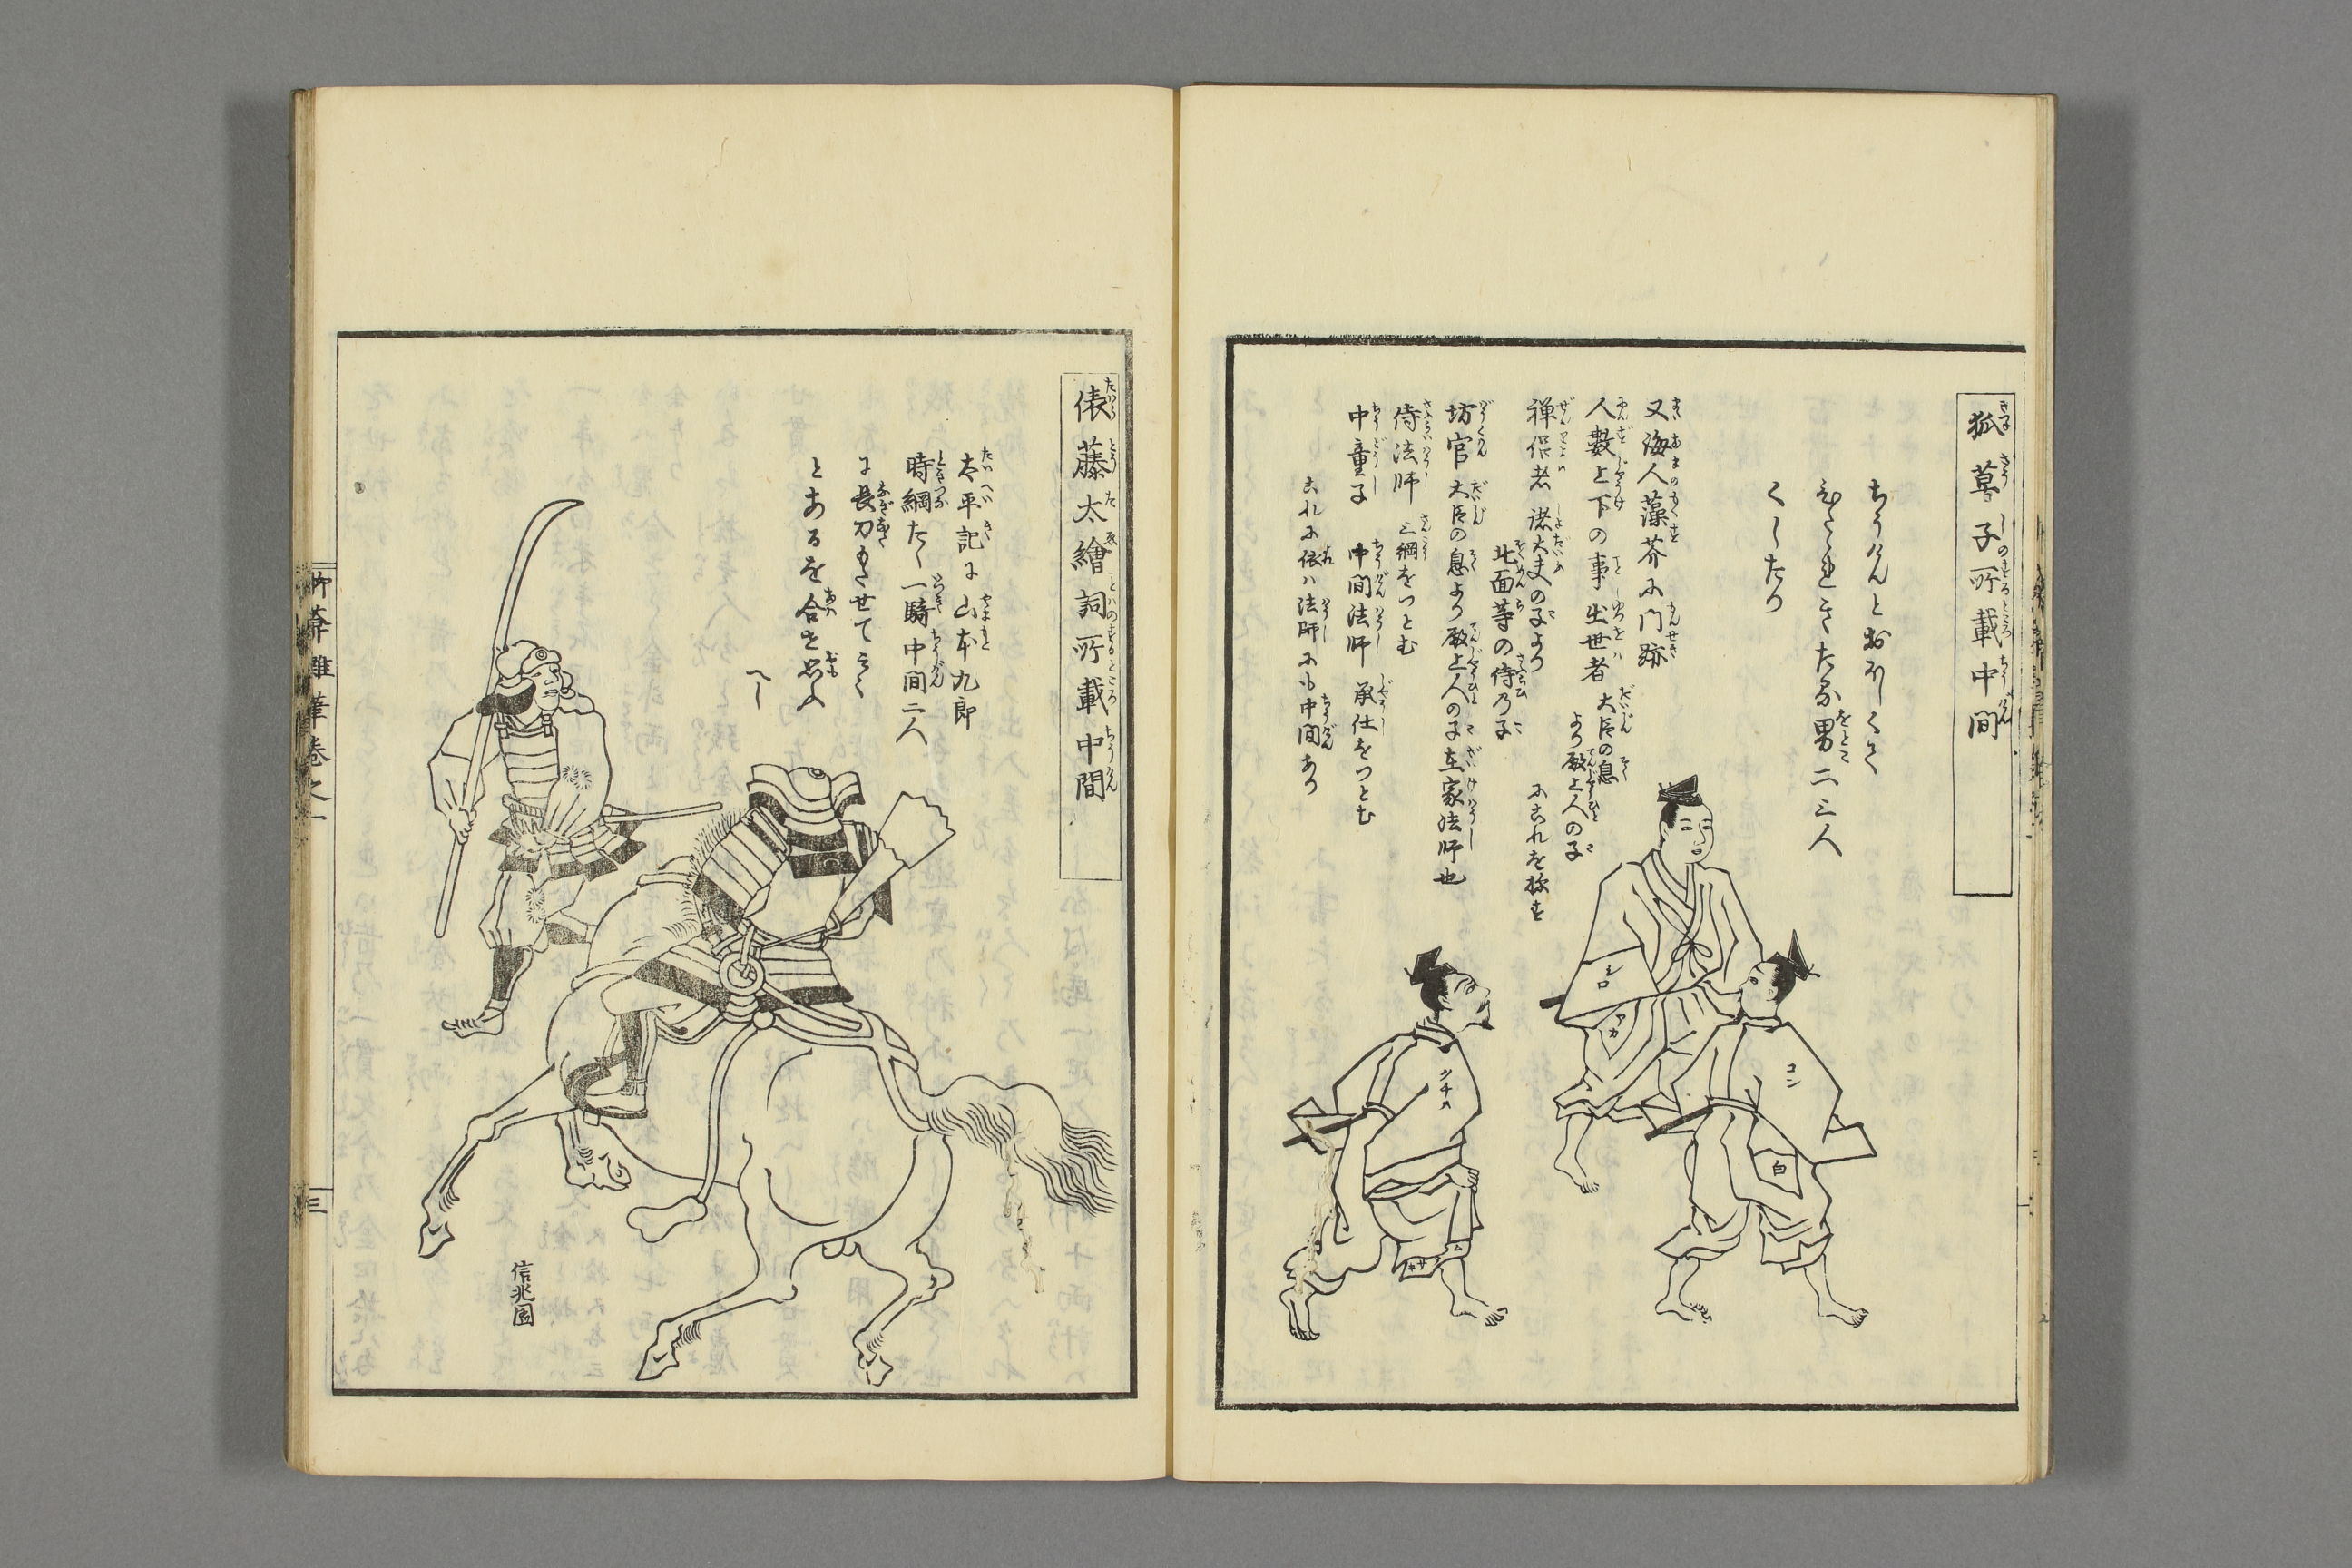 狐草子所載中間
ちうけんとおほしくて
ひたゝれきたる男二三人
くしたり
又海人藻芥に門跡
人數上下の事出世者
大臣の息
より殿上人の子
禅侶者諸大夫の子より
北面等の侍乃子
にこれを称す
坊官大臣の息より殿上人の子在家法師也
侍法師三綱をつとむ
中童子中間法師承仕をつとむ
これに依ハ法師にも中間あり
シロ
アカ
コン
白
クチハ
俵藤太繪詞所載中間
太平記に山本九郎
時綱たゝ一騎中間二人
に長刀もたせて云々
とあるを合せ思ふ
へし
信兆圖
三